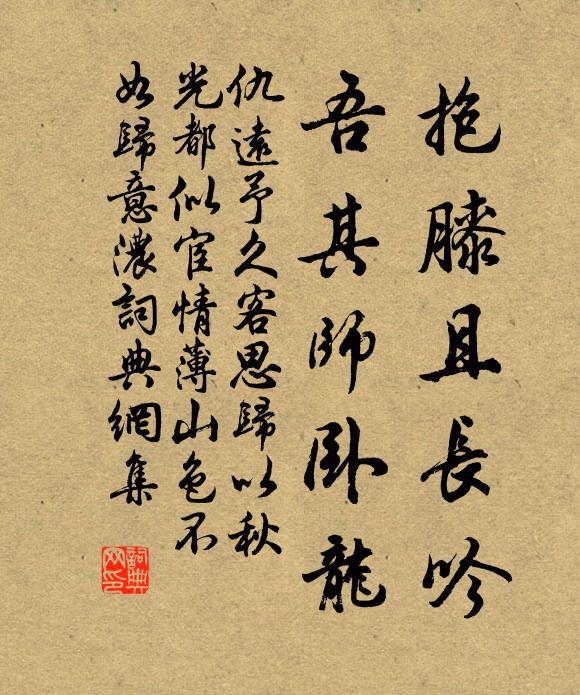 抱膝且長吟
吾其師卧龍
仇遠予久客思歸以秋
光都似宦情薄山色不
如歸意濃詞典網集
詞典
网印